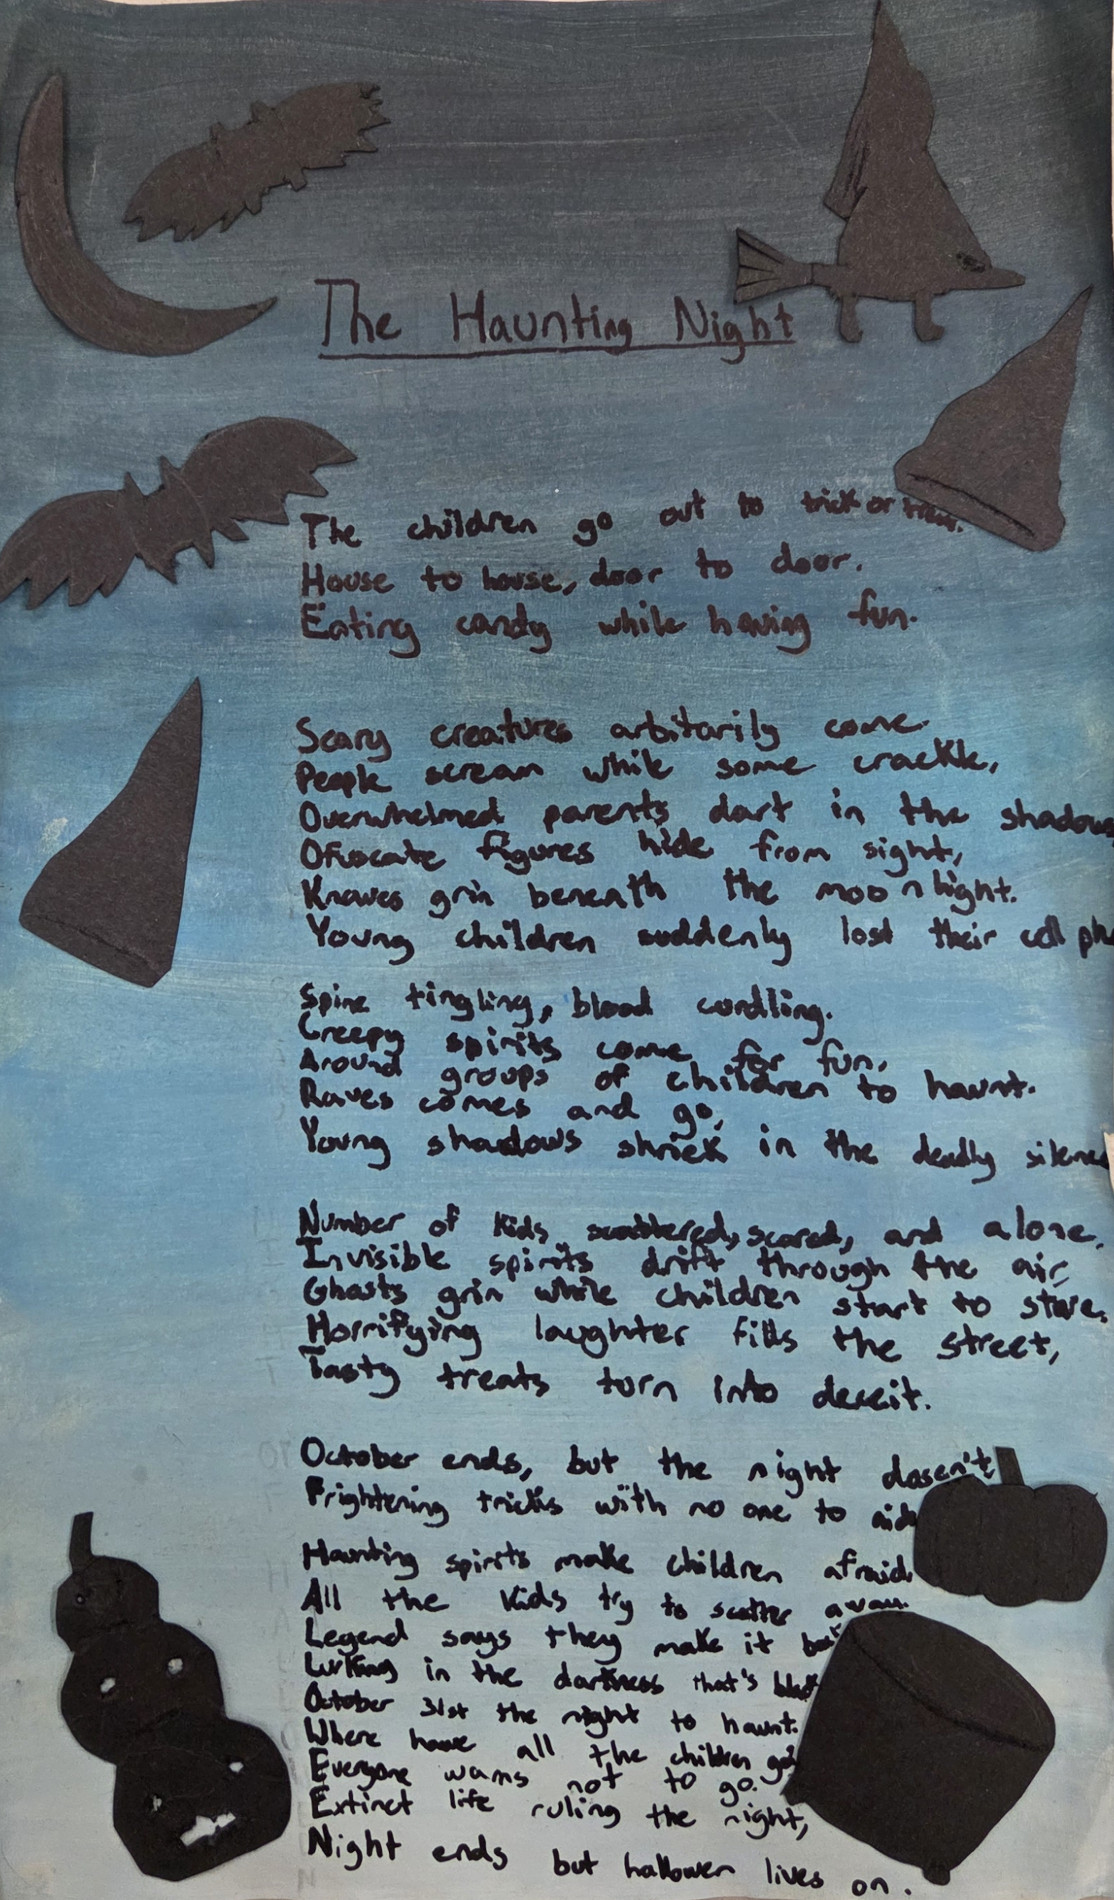 The Haunting Night
The children go out to trick or treat.
House to house, door to door.
Eating candy while having fun.
Scary creatures arbitarily come.
People scream while some crackle,
Overwhelmed parents dart in the shadows
Ofuscate figures hide from sight,
Knaves grin beneath the moonlight.
Young children suddenly lost their cell pho
Spine tingling, blood curdling.
Creepy spirits come for fun,
Around groups of children to haunt.
Raves comes and go,
Young shadows shriek in the deadly silence
Number of kids scattered, scared, and alone.
Invisible spirits drift through the air,
Ghosts grin while children start to stare.
Horrifying laughter fills the street,
Tasty treats turn into deceit.
October ends, but the night dosen't,
Frightening tricks with no one to aid
Haunting spirits make children afraid.
All the kids try to scatter away.
Legend says they make it back
Lurking in the darkness that's black
October 31st the night to haunt.
Where have all the children go?
Everyone warns not to go.
Extinct life ruling the night,
Night ends but hallowen lives on.